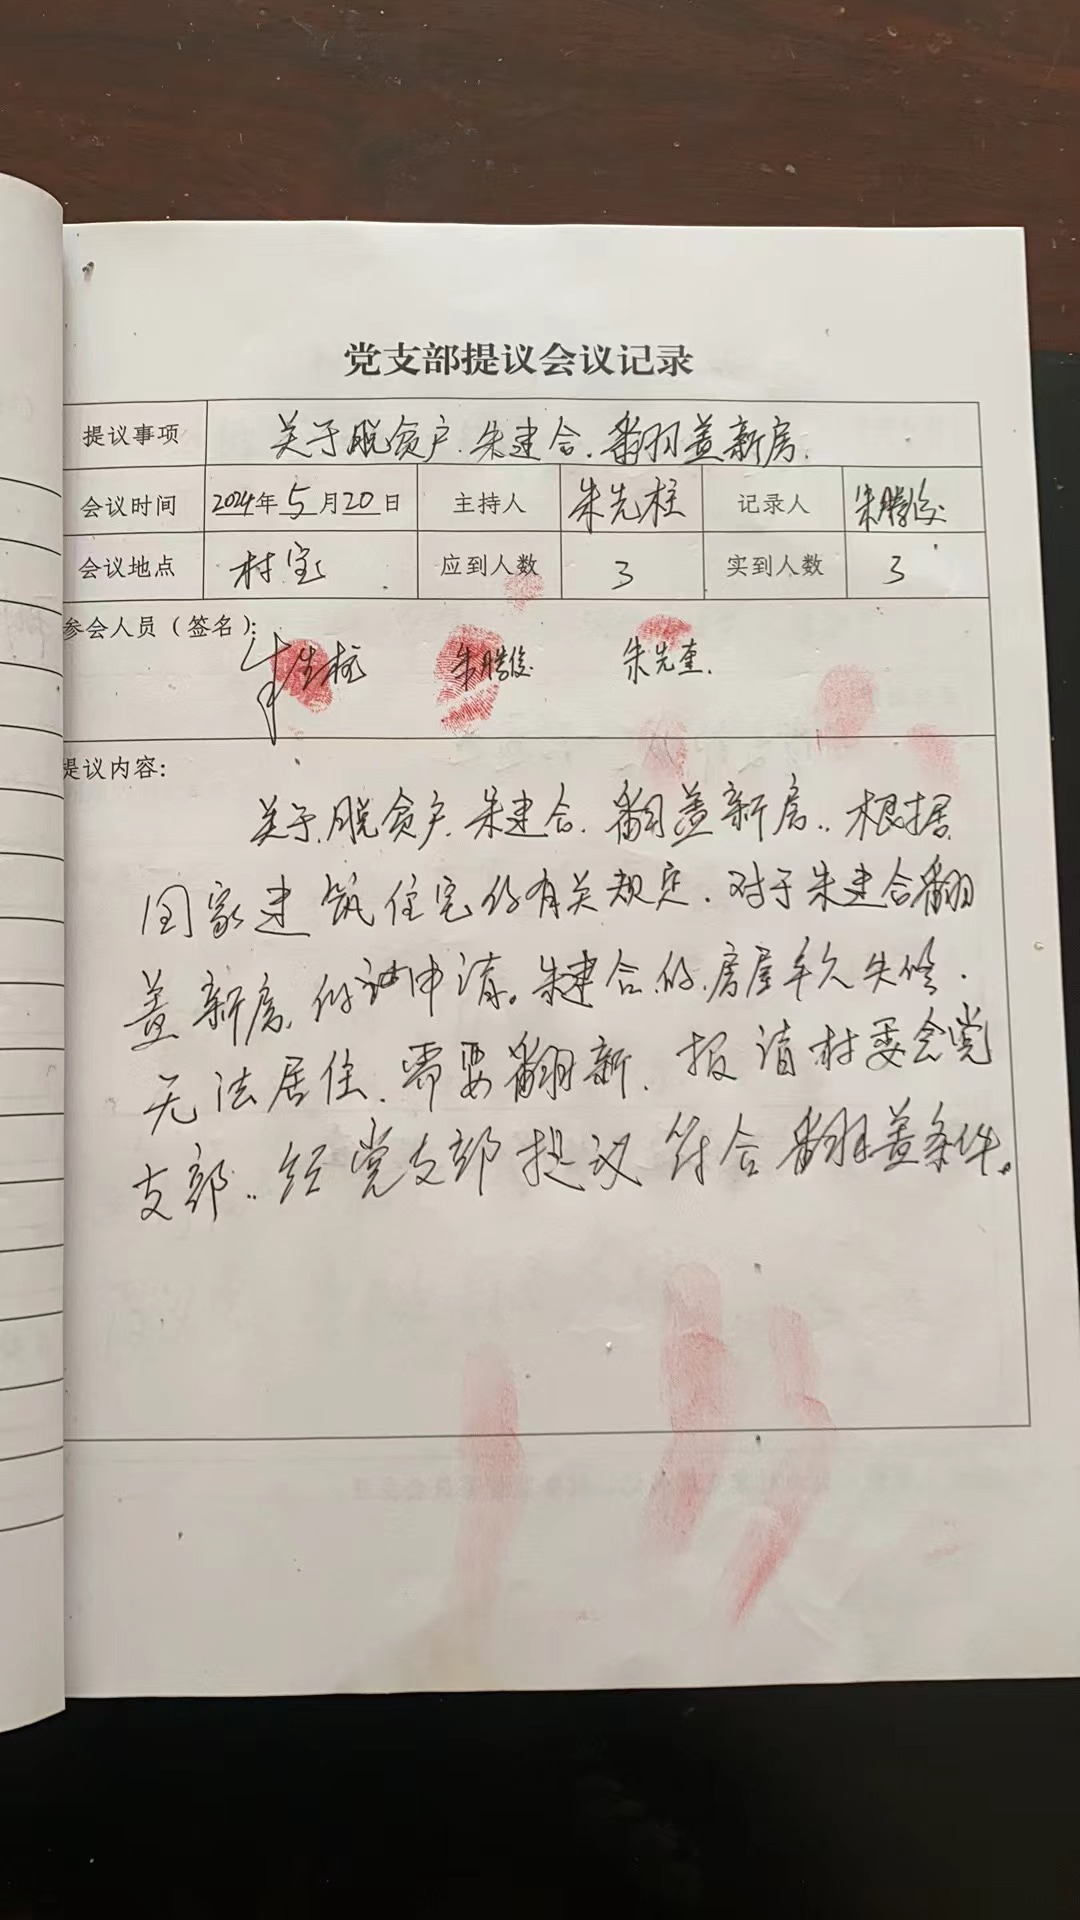 党支部提议会议记录
提议事项 关于脱贫户.朱建合.翻盖新房.
会议时间 2024年5月20日 主持人 朱先柱 记录人 朱腾俊
会议地点 村室 应到人数 3 实到人数 3
参会人员（签名）:
朱先柱 朱腾俊 朱先奎.
提议内容:
关于.脱贫户.朱建合.翻盖新房..根据
国家建筑住宅的有关规定.对于朱建合翻
盖新房.的申请。朱建合.的.房屋年久失修.
无法居住.需要翻新.报请村委会党
支部..经党支部提议符合翻盖条件。